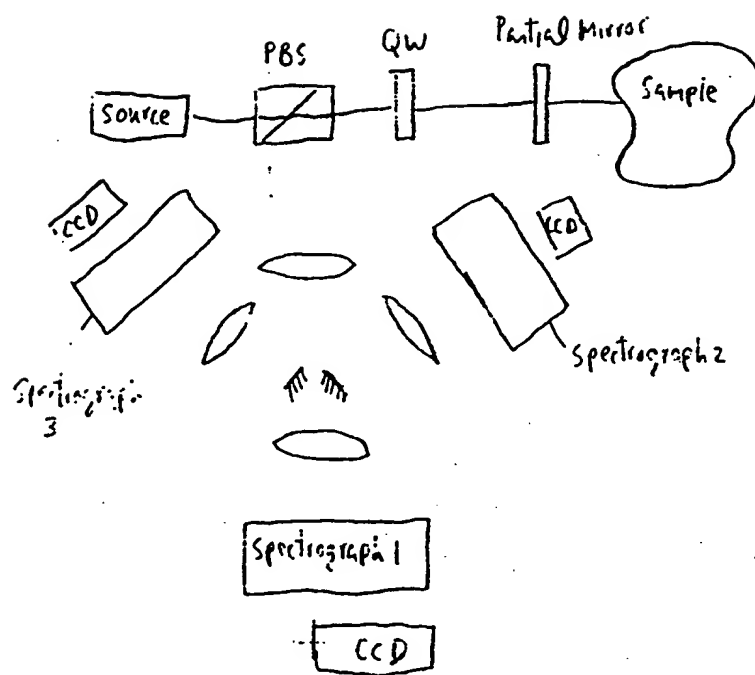 PBS
QW
Partial Mirror
Source
Sample
CCD
CCD
Spectrograph 2
Spectrograph
3
Spectrograph 1
CCD